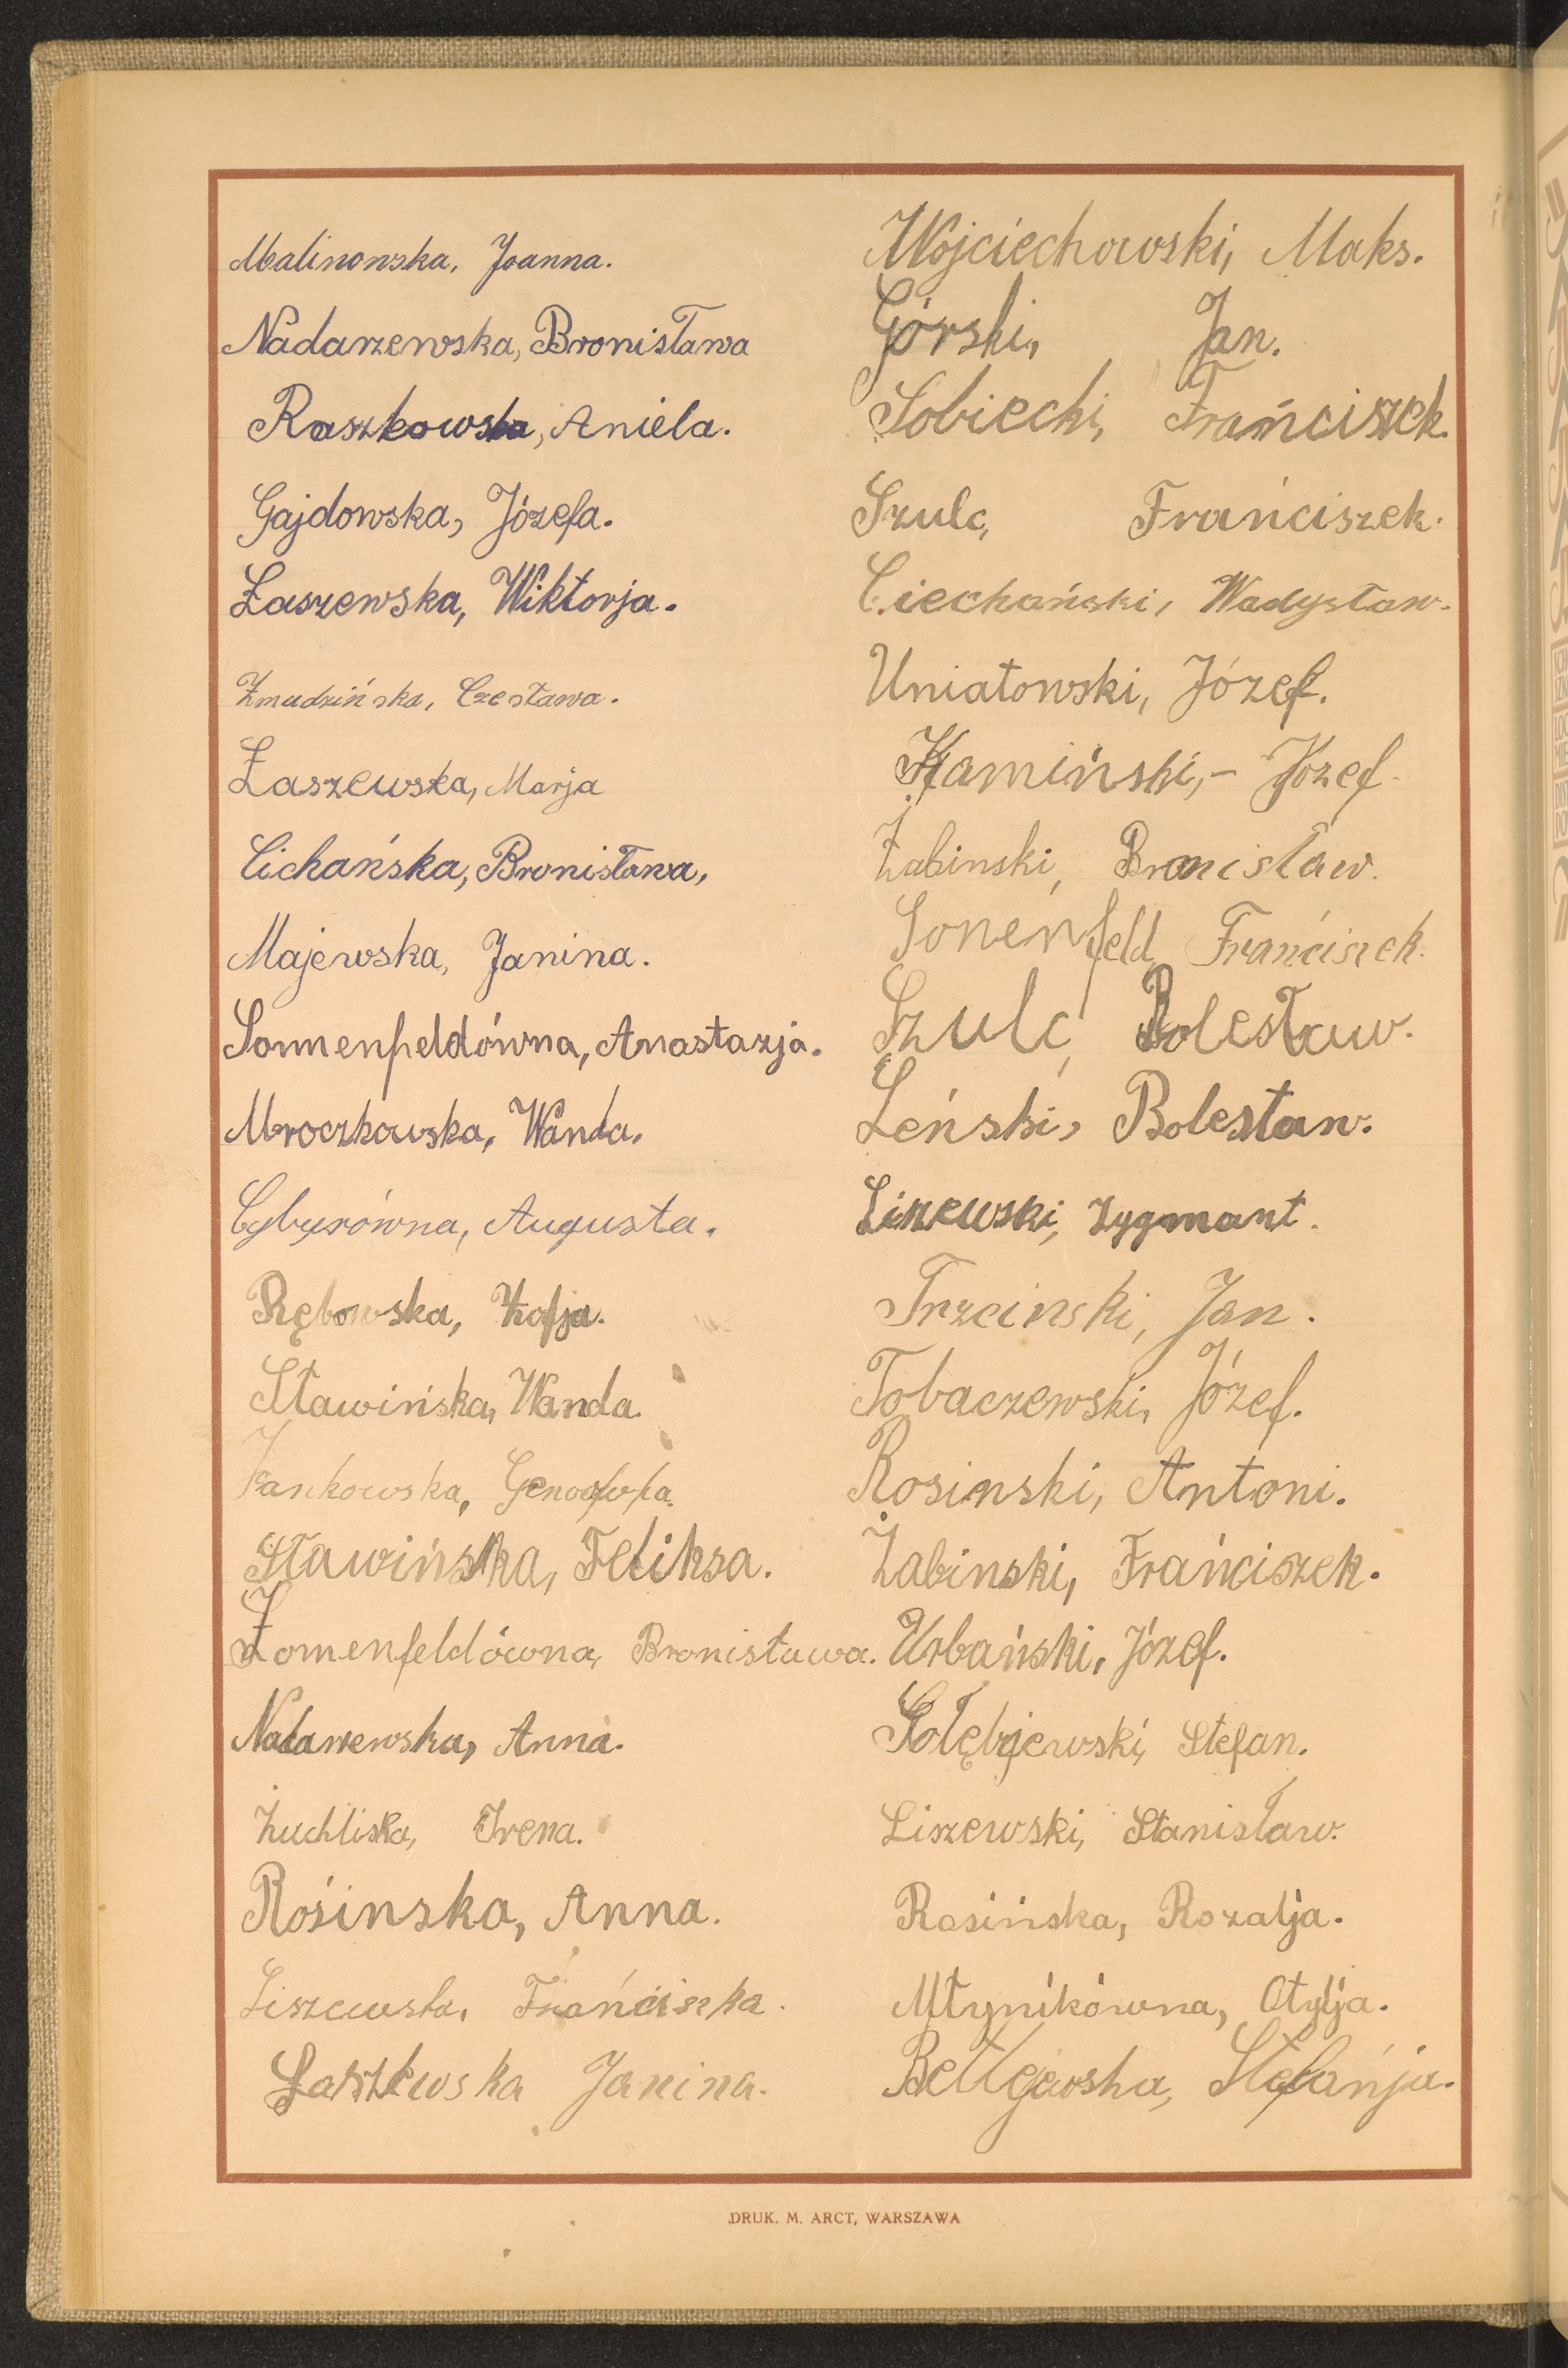 Malinowska, Joanna.
Nadarzewska, Bronisława
Raszkowska, Aniela.
Gajdowska, Józefa.
Łaszewska, Wiktorja.
Żmudzińska, Czesława.
Łaszewska, Marja
Cichańska, Bronisława,
Majewska, Janina.
Sonnenfeldówna, Anastazja.
Mroczkowska, Wanda.
Cybysówna, Augusta.
Rębowska, Zofja.
Sławińska, Wanda.
Jankowska, Genowefa.
Sławińska, Feliksa.
Zomenfeldówna, Bronisława.
Nadarzewska, Anna.
Żuchliska, Irena.
Rośinska, Anna.
Liszewska, Frańciszka.
Laszewska Janina.
Wojciechowski, Maks.
Górski, Jan.
Sobiecki, Frańciszek.
Szulc, Frańciszek.
Ciechański, Władysław.
Uniatowski, Józef.
Kamiński,- Józef.
Żabinski, Bronisław.
Sonenfeld, Frańciszek.
Szulc, Bolesław.
Leński, Bolesław.
Liszewski, Zygmant.
Trzcinski, Jan.
Tobaczewski, Józef.
Rosinski, Antoni.
Żabinski, Frańciszek.
Urbański, Józef.
Gołębjewski, Stefan.
Liszewski, Stanisław.
Rosińska, Rozalja.
Młynikówna, Otylja.
Stefańja.
DRUK. M. ARCT, WARSZAWA